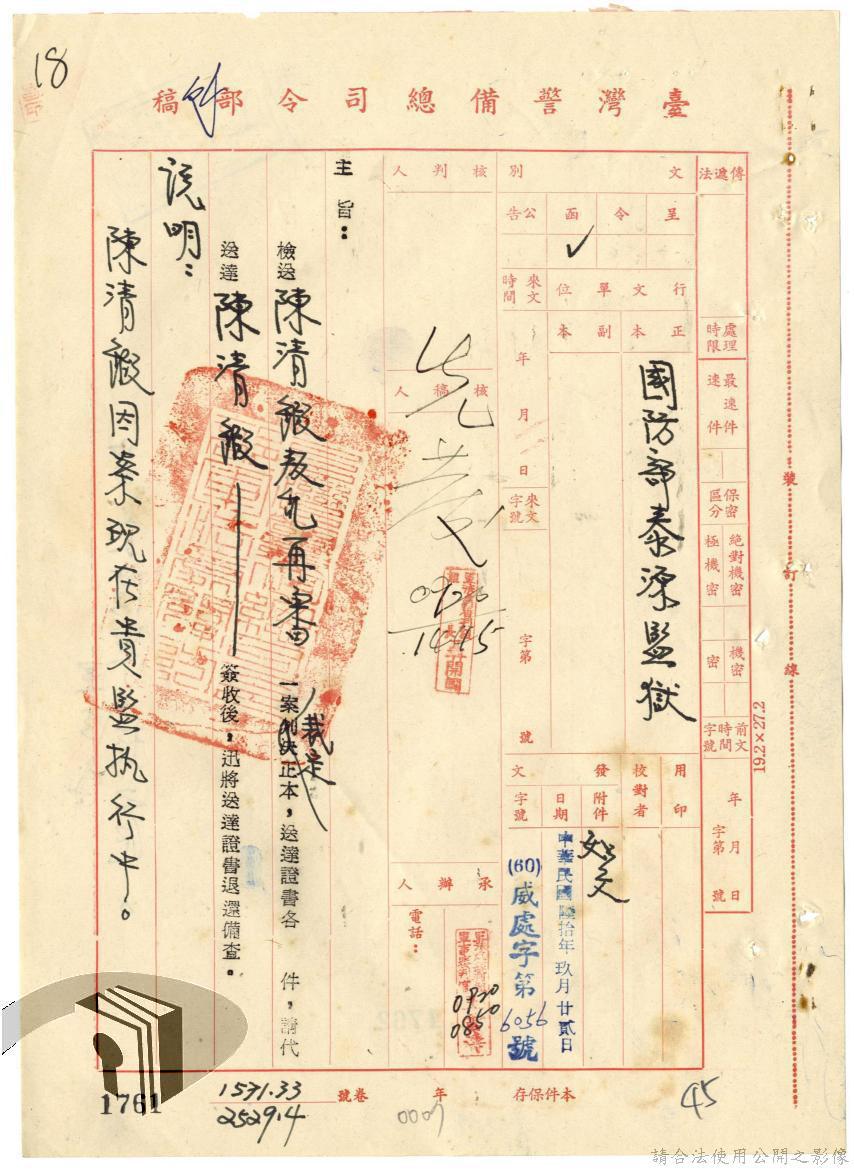 18
臺灣警備總司令部稿
傳遞法
處理時限
最速件
速件
保密區分
絕對機密
極機密
機密
密
前文時間字號
年
月
日
字第
號
文別
呈
令
函
公告
✓
行文單位
正本
副本
國防部泰源監獄
來文時間
年
月
日
來文字號
字第
號
發文
用印
校對者
附件
如文
日期
中華民國陸拾年玖月廿貳日
字號
(60)威處字第6056號
核判人
核稿人
0920
1445
承辦人
電話:
0920
0850
主旨:
檢送陳清銀叛亂再審一案判決裁定正本,送達證書各 件,請代
送達陳清銀簽收後,迅將送達證書退還備查。
說明:
陳清銀因案現在貴監執行中。
裝
訂
線
19.2×27.2
本件保存
年
卷號
1571.33
2529.4
0007
45
1761
請合法使用公開之影像